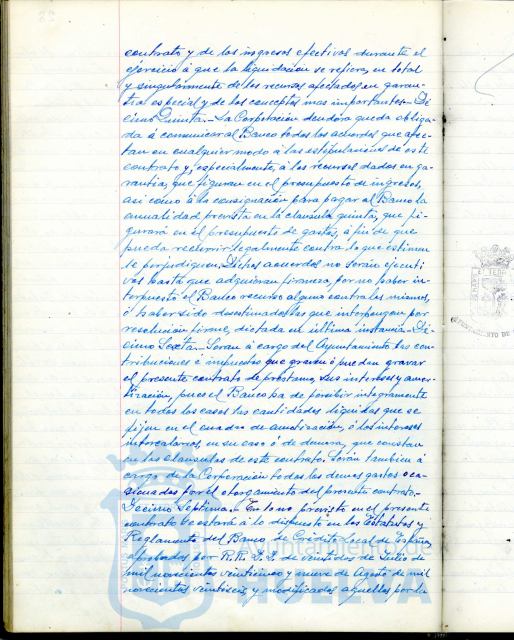 contrato y de los ingresos efectivos durante el
ejercicio á que la liquidacion se refiera, en total
y singularmente de los recursos afectados en garan-
tia especial y de los conceptos mas importantes.- Dé
cimo Quinta.- La Corporacion deudora queda obliga-
da á comunicar al Banco todos los acuerdos que afec-
tan en cualquier modo á las estipulaciones de este
contrato y, especialmente, á los recursos dados en ga-
rantia, que figuran en el presupuesto de ingresos,
asi como á la consignacion para pagar al Banco la
anualidad prevista en la clausula quinta, que fi-
gurará en el presupuesto de gastos, á fin de que
pueda recurrir legalmente contra lo que estime
le perjudiquen. Dichos acuerdos no serán ejecuti
vos hasta que adquieran firmeza, por no haber in-
terpuesto el Banco recurso alguno contra los mismos,
ó haber sido desestimados los que interponga por
resolución firme, dictada en ultima instancia.- Dé-
cimo Sexta.- Seran á cargo del Ayuntamiento las con
tribuciones é impuestos que graven ó puedan gravar
el presente contrato de préstamo, sus intereses y amor-
tización, pues el Banco ha de percibir integramente
en todos los casos las cantidades liquidas que se
fijen en el cuadro de amortización, ó los intereses
intercalarios, en su caso ó de demora, que constan
en las clausulas de este contrato. Serán tambien á
cargo de la Corporación todos los demas gastos oca-
sionados por el otorgamiento del presente contrato.-
Décimo Septima.- En lo no previsto en el presente
contrato se estará á lo dispuesto en los Estatutos y
Reglamento del Banco de Crédito Local de España,
aprobados por R.R. D.D. de veintidos de Julio de
mil novecientos veinticinco y nueve de Agosto de mil
novecientos veintiseis, y modificados aquellos por la
HUELVA